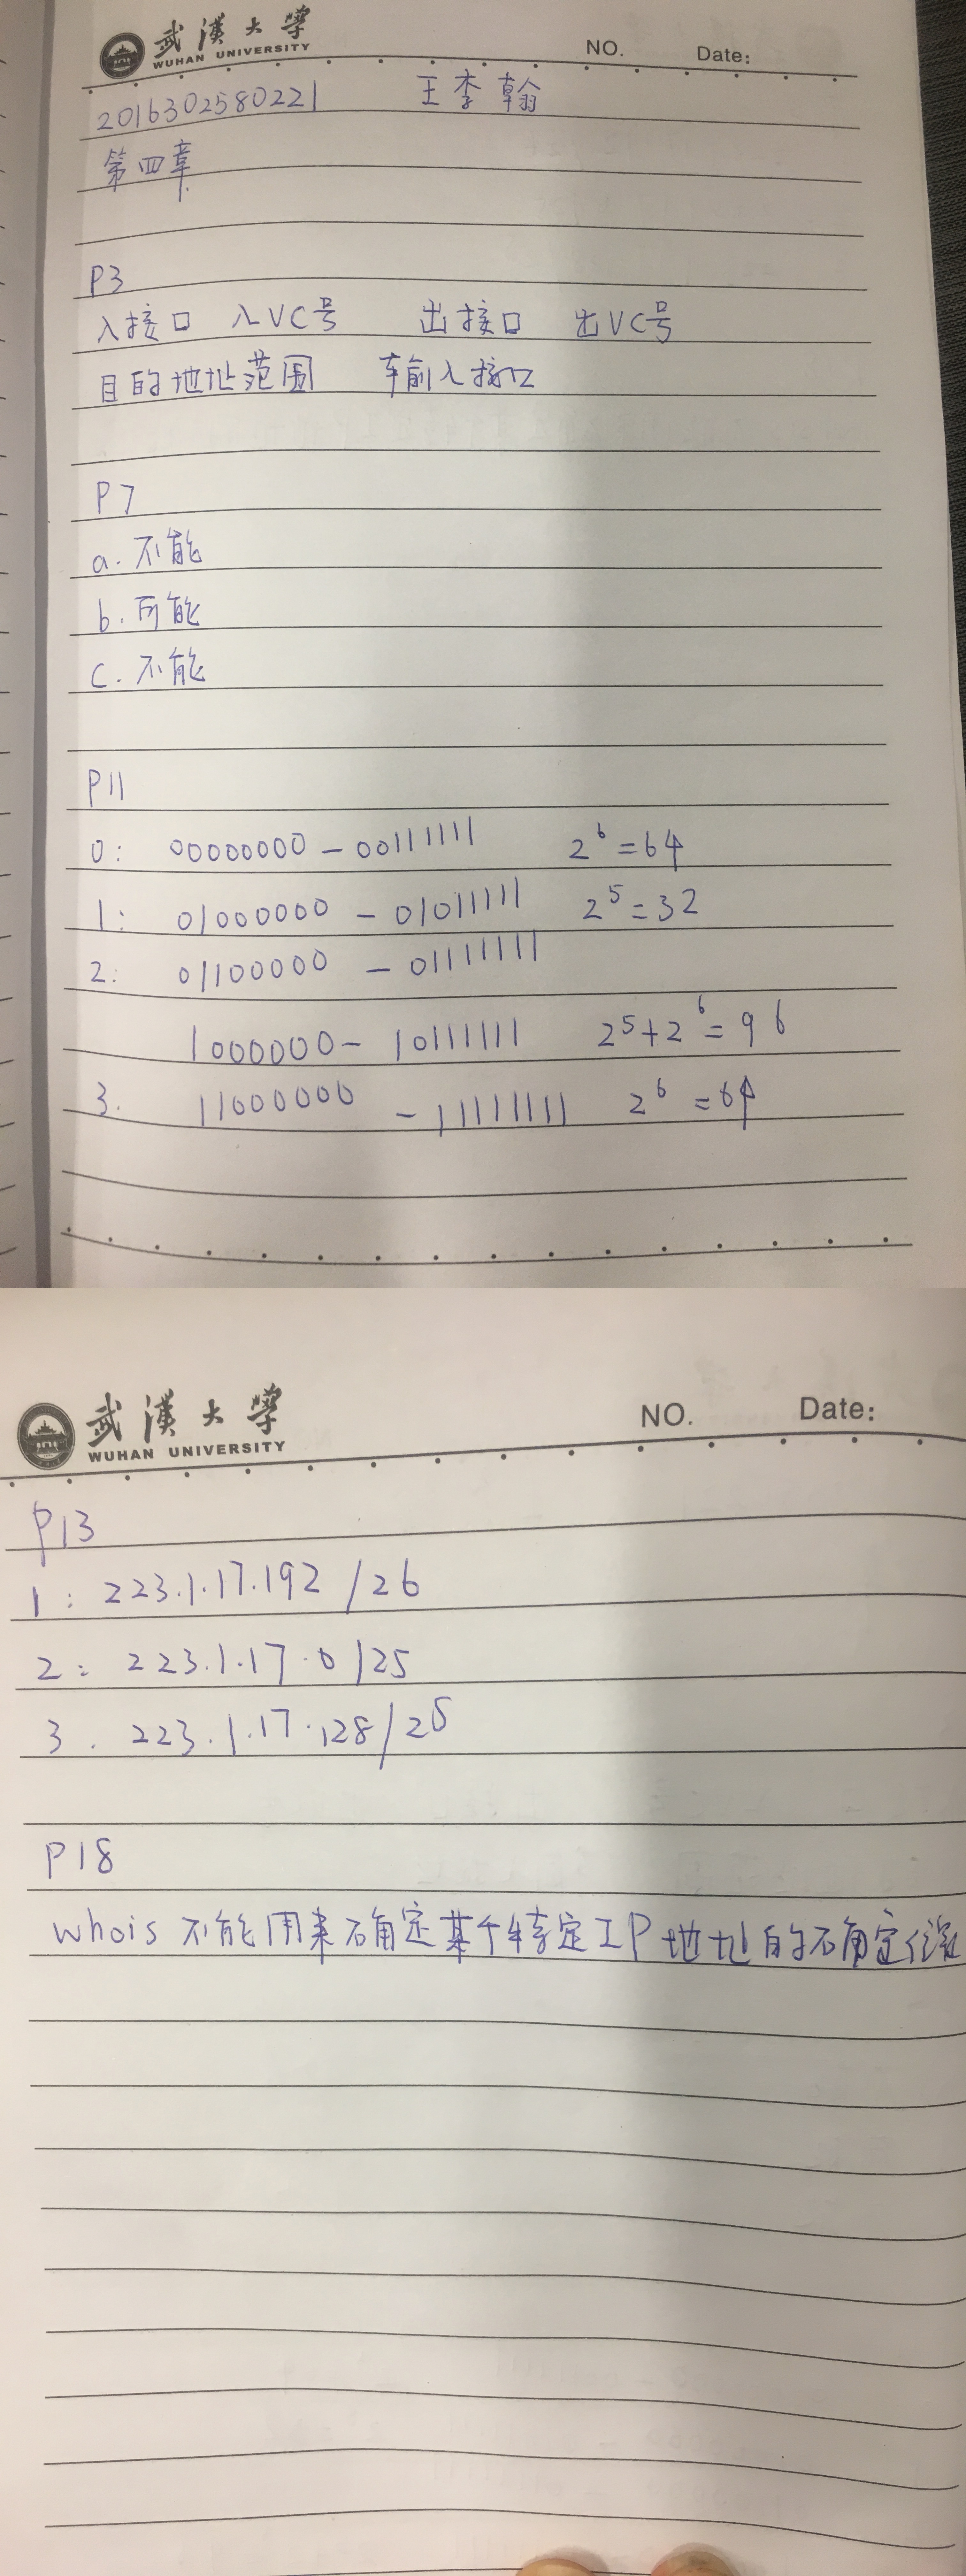 武漢大學
WUHAN UNIVERSITY
NO. Date:
2016302580221 王李翰
第四章
P3
入接口 入VC号 出接口 出VC号
目的地址范围 输入接口
P7
a. 不能
b. 可能
c. 不能
P11
0: 00000000 - 00111111 2^6=64
1: 01000000 - 01011111 2^5=32
2: 01100000 - 01111111
1000000 - 10111111 2^5+2^6=96
3. 11000000 - 11111111 2^6=64
武漢大學
WUHAN UNIVERSITY
NO. Date:
P13
1: 223.1.17.192 /26
2: 223.1.17.0 /25
3. 223.1.17.128/28
P18
whois 不能用来确定某个特定IP地址的确定位置